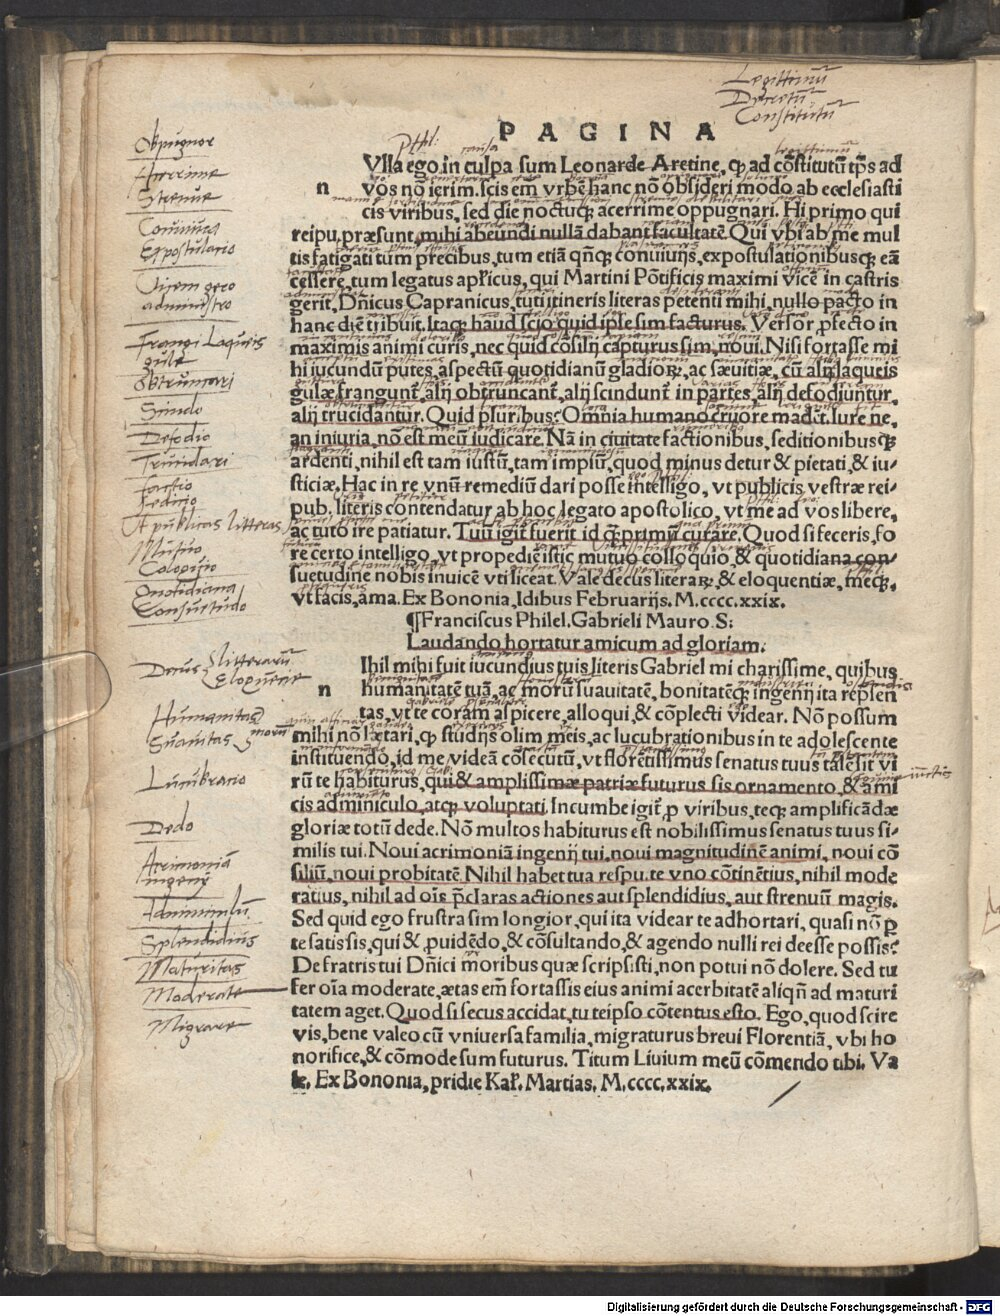 Legittimū
Decretū
Constitutū
PAGINA
Vlla ego in culpa sum Leonarde Aretine, ꝙ ad cōstitutū tp̄s ad
n vos nō ierim. scis em̄ vrbē hanc nō obsideri modo ab ecclesiasti
cis viribus, sed die noctuqꝫ acerrime oppugnari. Hi primo qui
reipu. præsunt, mihi abeundi nullā dabant facultatē. Qui vbi ab me mul
tis fatigati tum precibus, tum etiā qn̄qꝫ conuiuijs, expostulationibusqꝫ eā
cessere, tum legatus ap̄licus, qui Martini Pōtificis maximi vicē in castris
gerit, Dn̄icus Capranicus, tuti itineris literas petenti mihi nullo pacto in
hanc diē tribuit. Itaqꝫ haud scio quid ipse sim facturus. Versor ꝓfecto in
maximis animi curis, nec quid cōsilij capturus sim, noui. Nisi fortasse mi
hi iucundū putes, aspectū quotidianū gladioꝝ, ac sæuitiæ, cū alij laqueis
gulæ frangunt̄, alij obtruncant̄, alij scindunt̄ in partes, alij defodiuntur,
alij trucidantur. Quid pluribus? Omnia humano cruore madēt. Iure ne,
an iniuria, nō est meū iudicare. Nā in ciuitate factionibus, seditionibusqꝫ
ardenti, nihil est tam iustū, tam impiū, quod minus detur & pietati, & iu-
sticiæ. Hac in re vnū remediū dari posse intelligo, vt publicis vestræ rei-
pub. literis contendatur ab hoc legato apostolico, vt me ad vos libere,
ac tuto ire patiatur. Tuū igit̄ fuerit id ꝗ̄primū curare. Quod si feceris, fo
re certo intelligo, vt propediē istic mutuo colloquio, & quotidiana con-
suetudine nobis inuicē vti liceat. Vale decus literaꝝ, & eloquentiæ, meqꝫ,
vt facis, ama. Ex Bononia, Idibus Februarijs. M.cccc.xxix.
¶Franciscus Philel. Gabrieli Mauro. S:
Laudando hortatur amicum ad gloriam.
Ihil mihi fuit iucundius tuis literis Gabriel mi charissime, quibus
n humanitatē tuā, ac morū suauitatē, bonitatēqꝫ ingenij ita repsen
tas, vt te coram aspicere, alloqui & cōplecti videar. Nō possum
mihi nō lætari, ꝙ studijs olim meis, ac lucubrationibus in te adolescente
instituendo, id me videā cōsecutū, vt florētissimus senatus tuus talē sit vi
rū te habiturus, qui & amplissimæ patriæ futurus sis ornamento, & ami
cis adminiculo, atqꝫ voluptati. Incumbe igit̄ ꝓ viribus, teqꝫ amplificādæ
gloriæ totū dede. Nō multos habiturus est nobilissimus senatus tuus si-
milis tui. Noui acrimoniā ingenij tui, noui magnitudinē animi, noui cō
siliū, noui probitatē. Nihil habet tua respu. te vno cōtinētius, nihil mode
ratius, nihil ad oīs p̄claras actiones aut splendidius, aut strenuū magis.
Sed quid ego frustra sim longior, qui ita videar te adhortari, quasi nō ꝑ
te satis sis, qui & ꝓuidēdo, & cōsultando, & agendo nulli rei deesse possis?
De fratris tui Dn̄ici moribus quæ scripsisti, non potui nō dolere. Sed tu
fer oīa moderate, ætas em̄ fortassis eius animi acerbitatē aliqn̄ ad maturi
tatem aget. Quod si secus accidat, tu teipso cōtentus esto. Ego, quod scire
vis, bene valeo cū vniuersa familia, migraturus breui Florentiā, vbi ho
norifice, & cōmode sum futurus. Titum Liuium meū cōmendo tibi. Va
le. Ex Bononia, pridie Kaľ. Martias. M.cccc.xxix.
Obpugnor
Acerrime
Strenue
Conuiuia
Expostulatio
Vicem gero
administro
Frangi Laqueis
gule
Obtruncari
Scindo
Defodio
Trucidari
factio
Seditio
A publicas litteras
Mutuo
Coloquio
Quotidiana
Consuetudo
Decus litterarū
Eloquentie
Humanitas
Suauitas morū
Lucubratio
Dedo
Acrimoniā
ingenij
Adminiculū
Splendidius
Maturitas
Moderate
Migrare
Digitalisierung gefördert durch die Deutsche Forschungsgemeinschaft - DFG